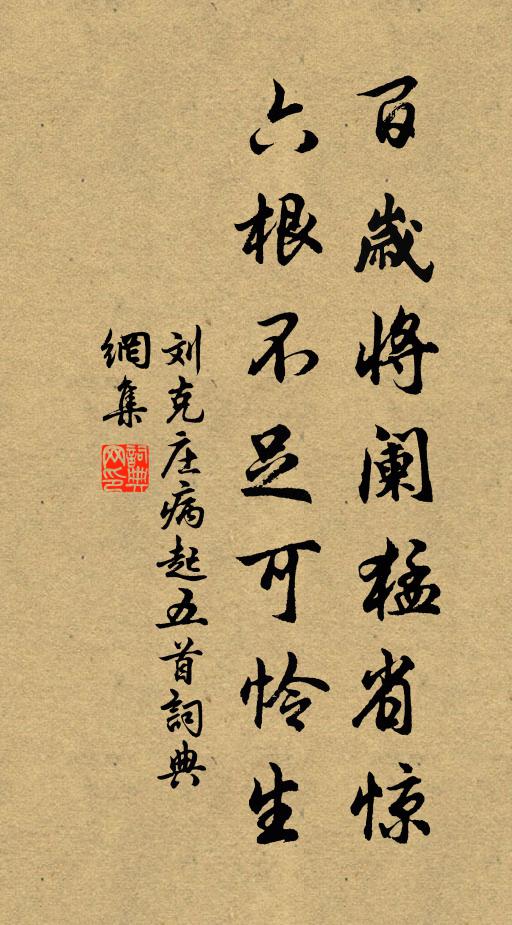 百歲將阑猛省惊
六根不足可怜生
刘克庄病起五首詞典
網集
詞典
网印